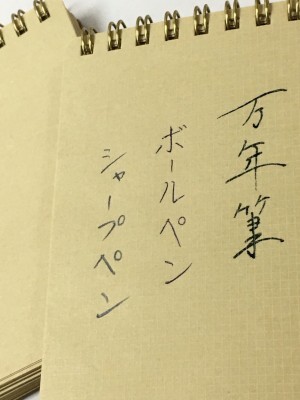 万年筆
ボールペン
シャープペン